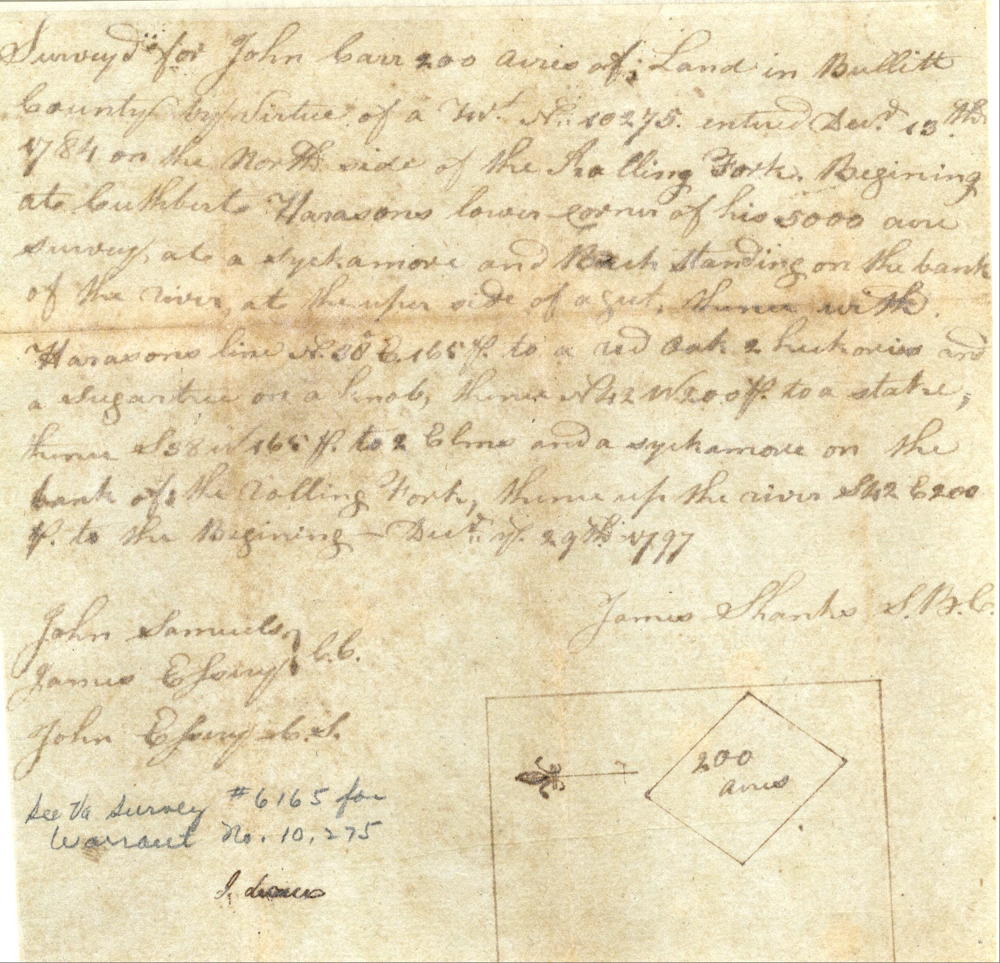 Survey'd for John Carr 200 acres of Land in Bullitt
County by Virtue of a Wt. No. 10275. entered Decr. 13th
1784 on the North side of the Rolling Fork. Begining
at Cuthbert Harasons lower corner of his 5000 acre
survey, at a syckamore and Beech standing on the bank
of the river, at the uper side of a gut, thence with
Harasons line N. 38 E 165 P. to a red Oak 2 hickories and
a Sugartree on a knob, thence N 42 W 200 P. to a stake,
thence S 38 W 165 P. to 2 Elms and a syckamore on the
bank of the rolling Fork, thence up the river S 42 E 200
P. to the Begining — 29th 1797
James Shanks S.B.C.
John Samuels
James C.C.
John
See Va Survey #6165 for
Warrant No. 10,275
200
acres